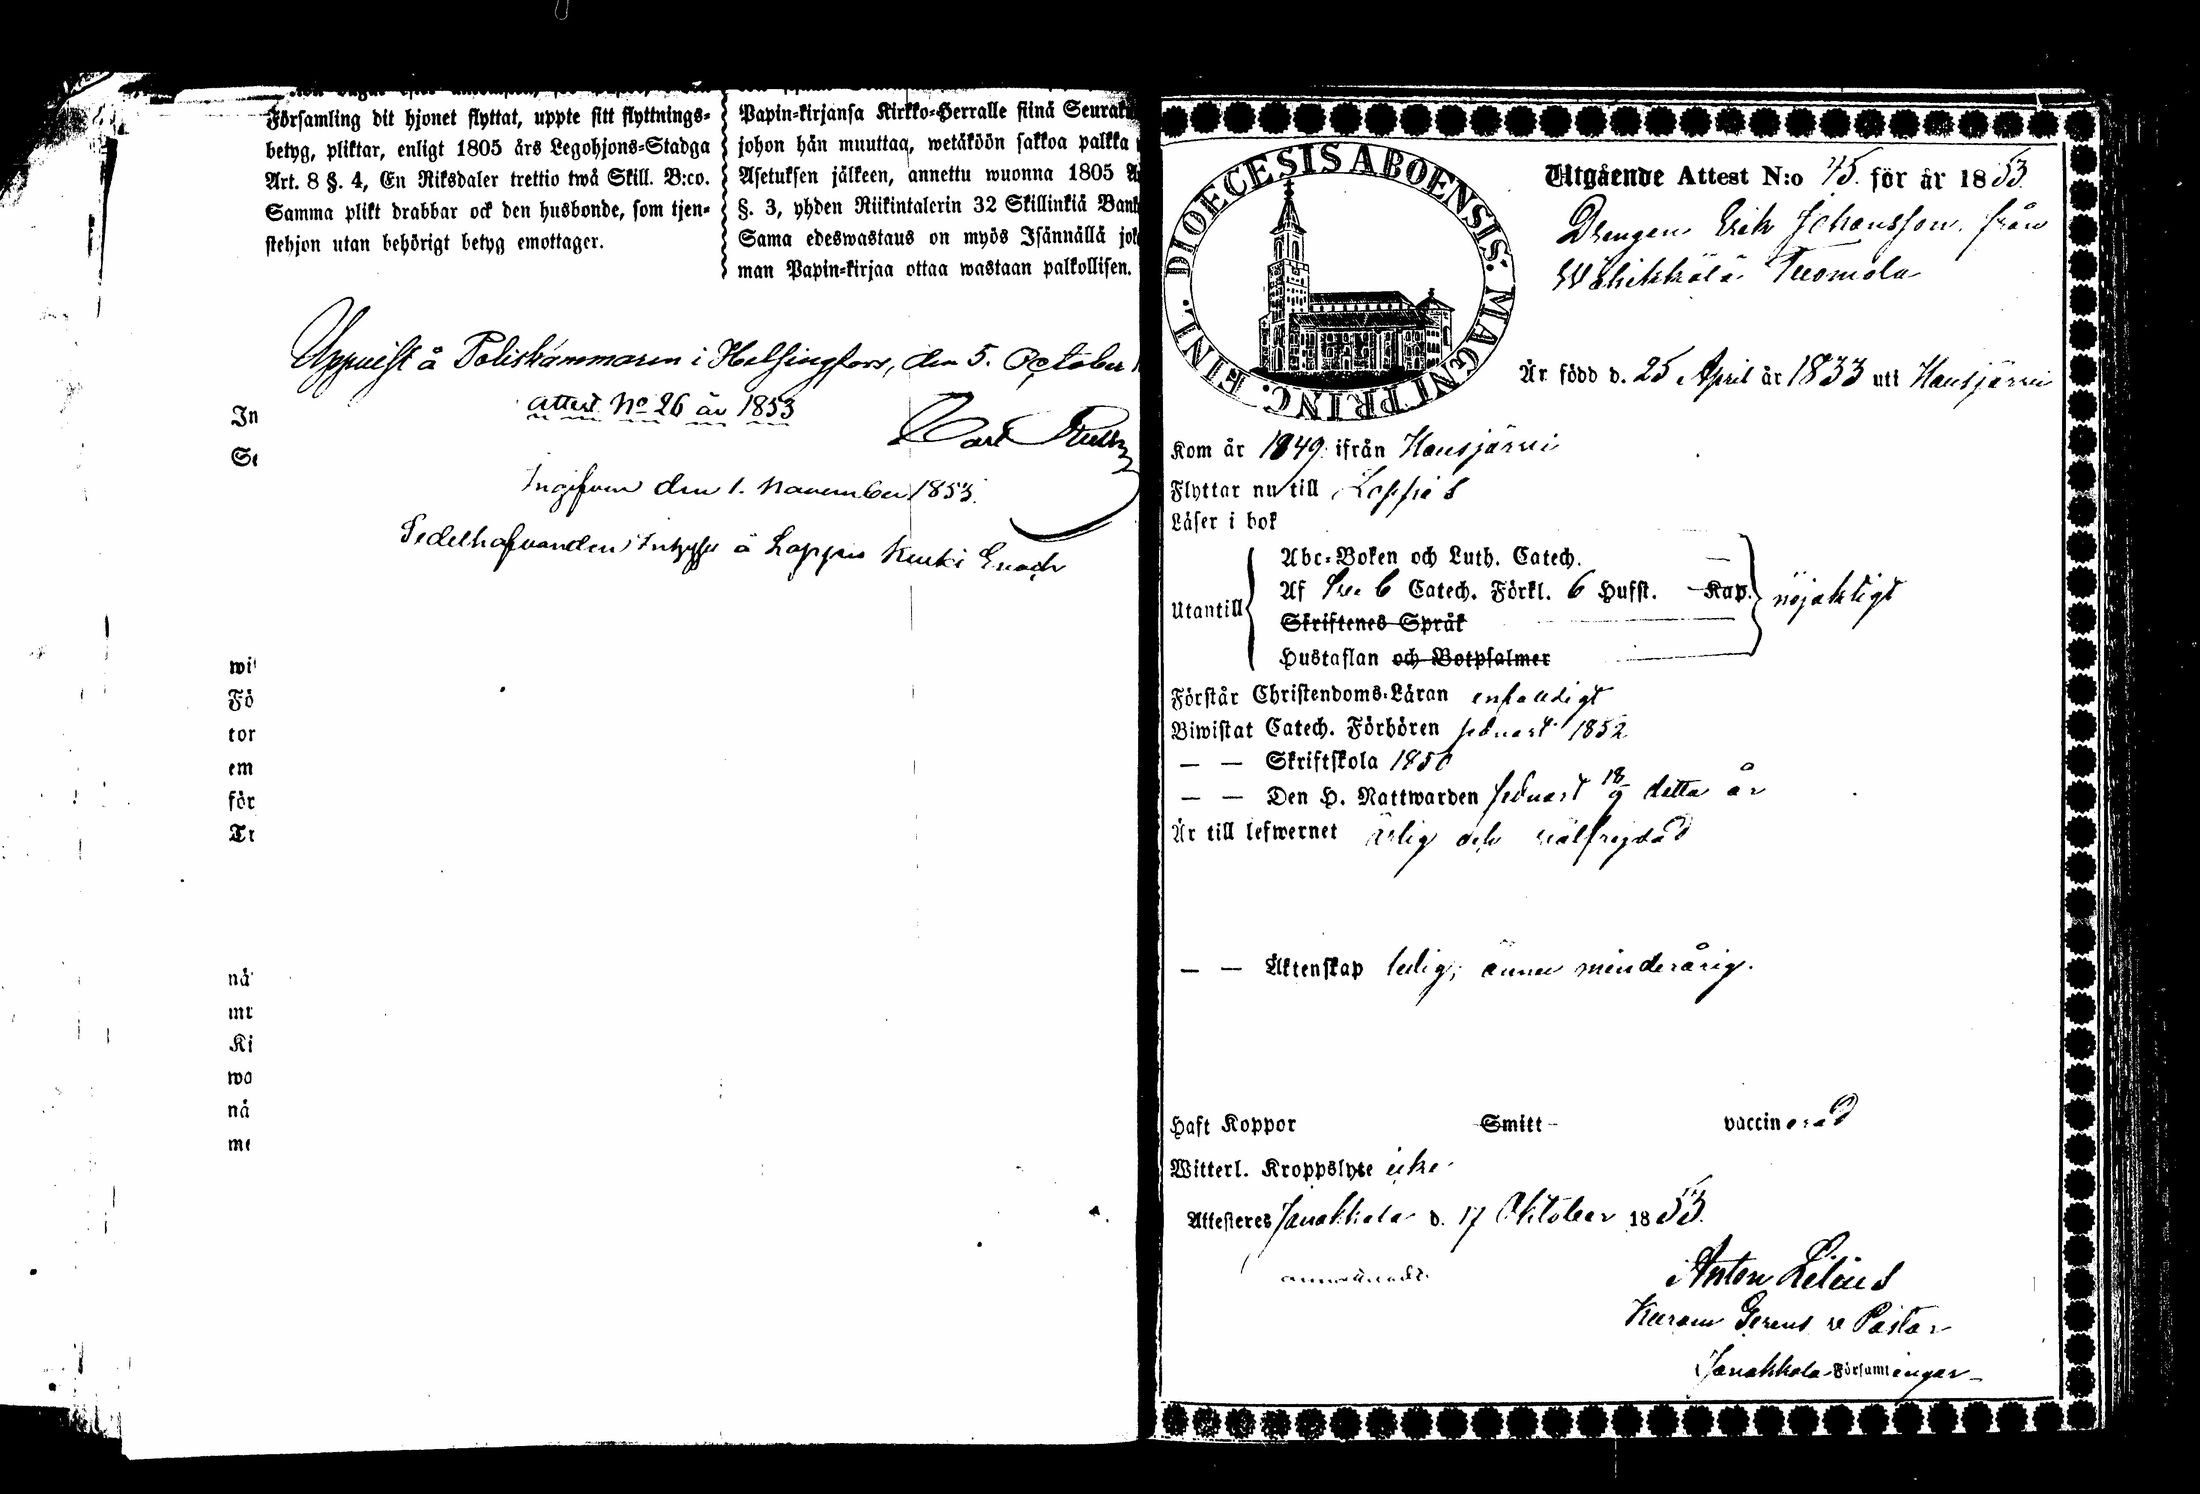 Församling dit hjonet flyttat, uppte sitt flyttnings-
betyg, pliktar, enligt 1805 års Legohjons-Stadga
Art. 8 §. 4, En Riksdaler trettio twå Skill. B:co.
Samma plikt drabbar ock den husbonde, som tjen-
stehjon utan behörigt betyg emottager.
Papin-kirjansa Kirkko-Herralle siinä
johon hän muuttaa, wetäköön sakkoa palkka
Asetuksen jälkeen, annettu wuonna 1805
§. 3, yhden Riikintalerin 32 Skillinkiä
Sama edeswastaus on myös Isännällä
man Papin-kirjaa ottaa wastaan palkollisen.
Uppvist å Poliskammaren i Helsingfors, den 5. October
attest No 26 år 1853
Carl
Ingifven den 1. November 1853.
å Loppis Kurki
In
wi
Fö
tor
em
för
Tr
nå
mr
Ki
wa
nå
me
DIOECESIS ABOENSIS. MAGNI PRINC. FINL.
Utgående Attest N:o 75. för år 1853
Drengen Erik Johansson, från
Wähikkälä Tuomola
Är född d. 25 April år 1833 uti Hausjärvi
Kom år 1849. ifrån Hausjärvi
Flyttar nu till Loppis
Läser i bok
Abc-Boken och Luth. Catech. —
Utantill Af 6 Catech. Förkl. 6 Hufst. Kap. nöjaktigt
Skriftenes Språk
Hustaflan och Botpsalmer
Förstår Christendoms-Läran enfaldigt
Biwistat Catech. Förhören sednast 1852
— — Skriftskola 1850
— — Den H. Nattwarden sednast 18/9 detta år
Är till lefwernet ärlig och välfrejdad
— — Äktenskap ledig, ännu minderårig.
Haft Koppor Smitt vaccinerad
Witterl. Kroppslyte icke
Attesteras Janakkala d. 17 Oktober 1853.
Anton Lilius
Pastor
Janakkala Församlingar